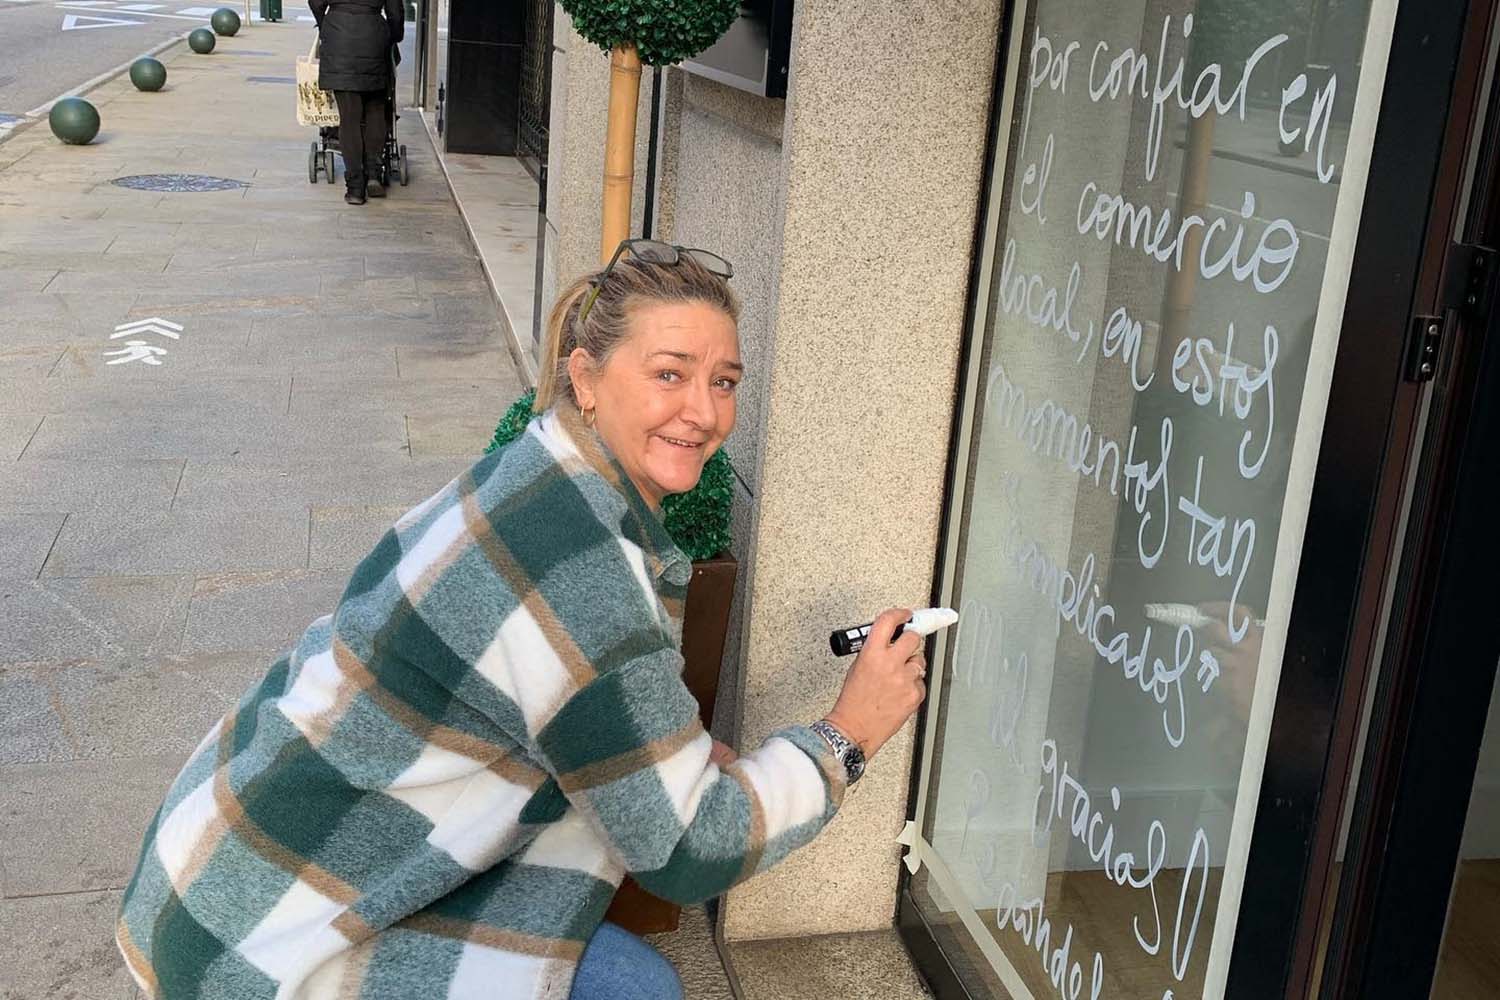 por confiar en
el comercio
local, en estos
momentos tan
complicados"
Mil gracias!